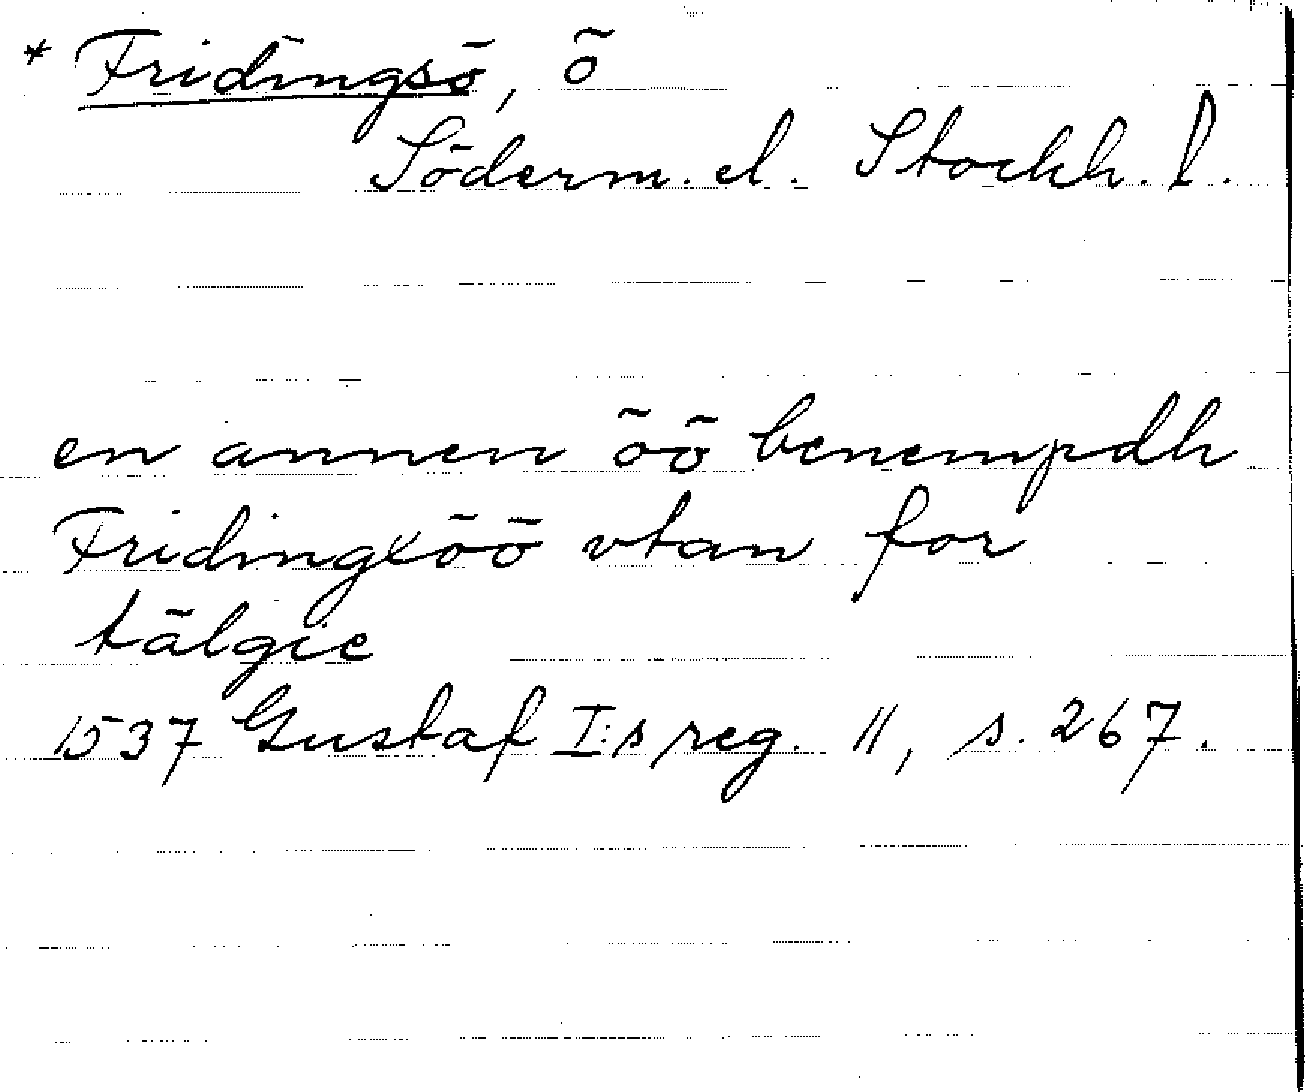 * Fridingsö, ö
Söderm. el. Stockh. l.
en annen öö benempdh
Fridingxöö vtan for
tälgie
1537 Gustaf I:s reg. 11, s. 267.